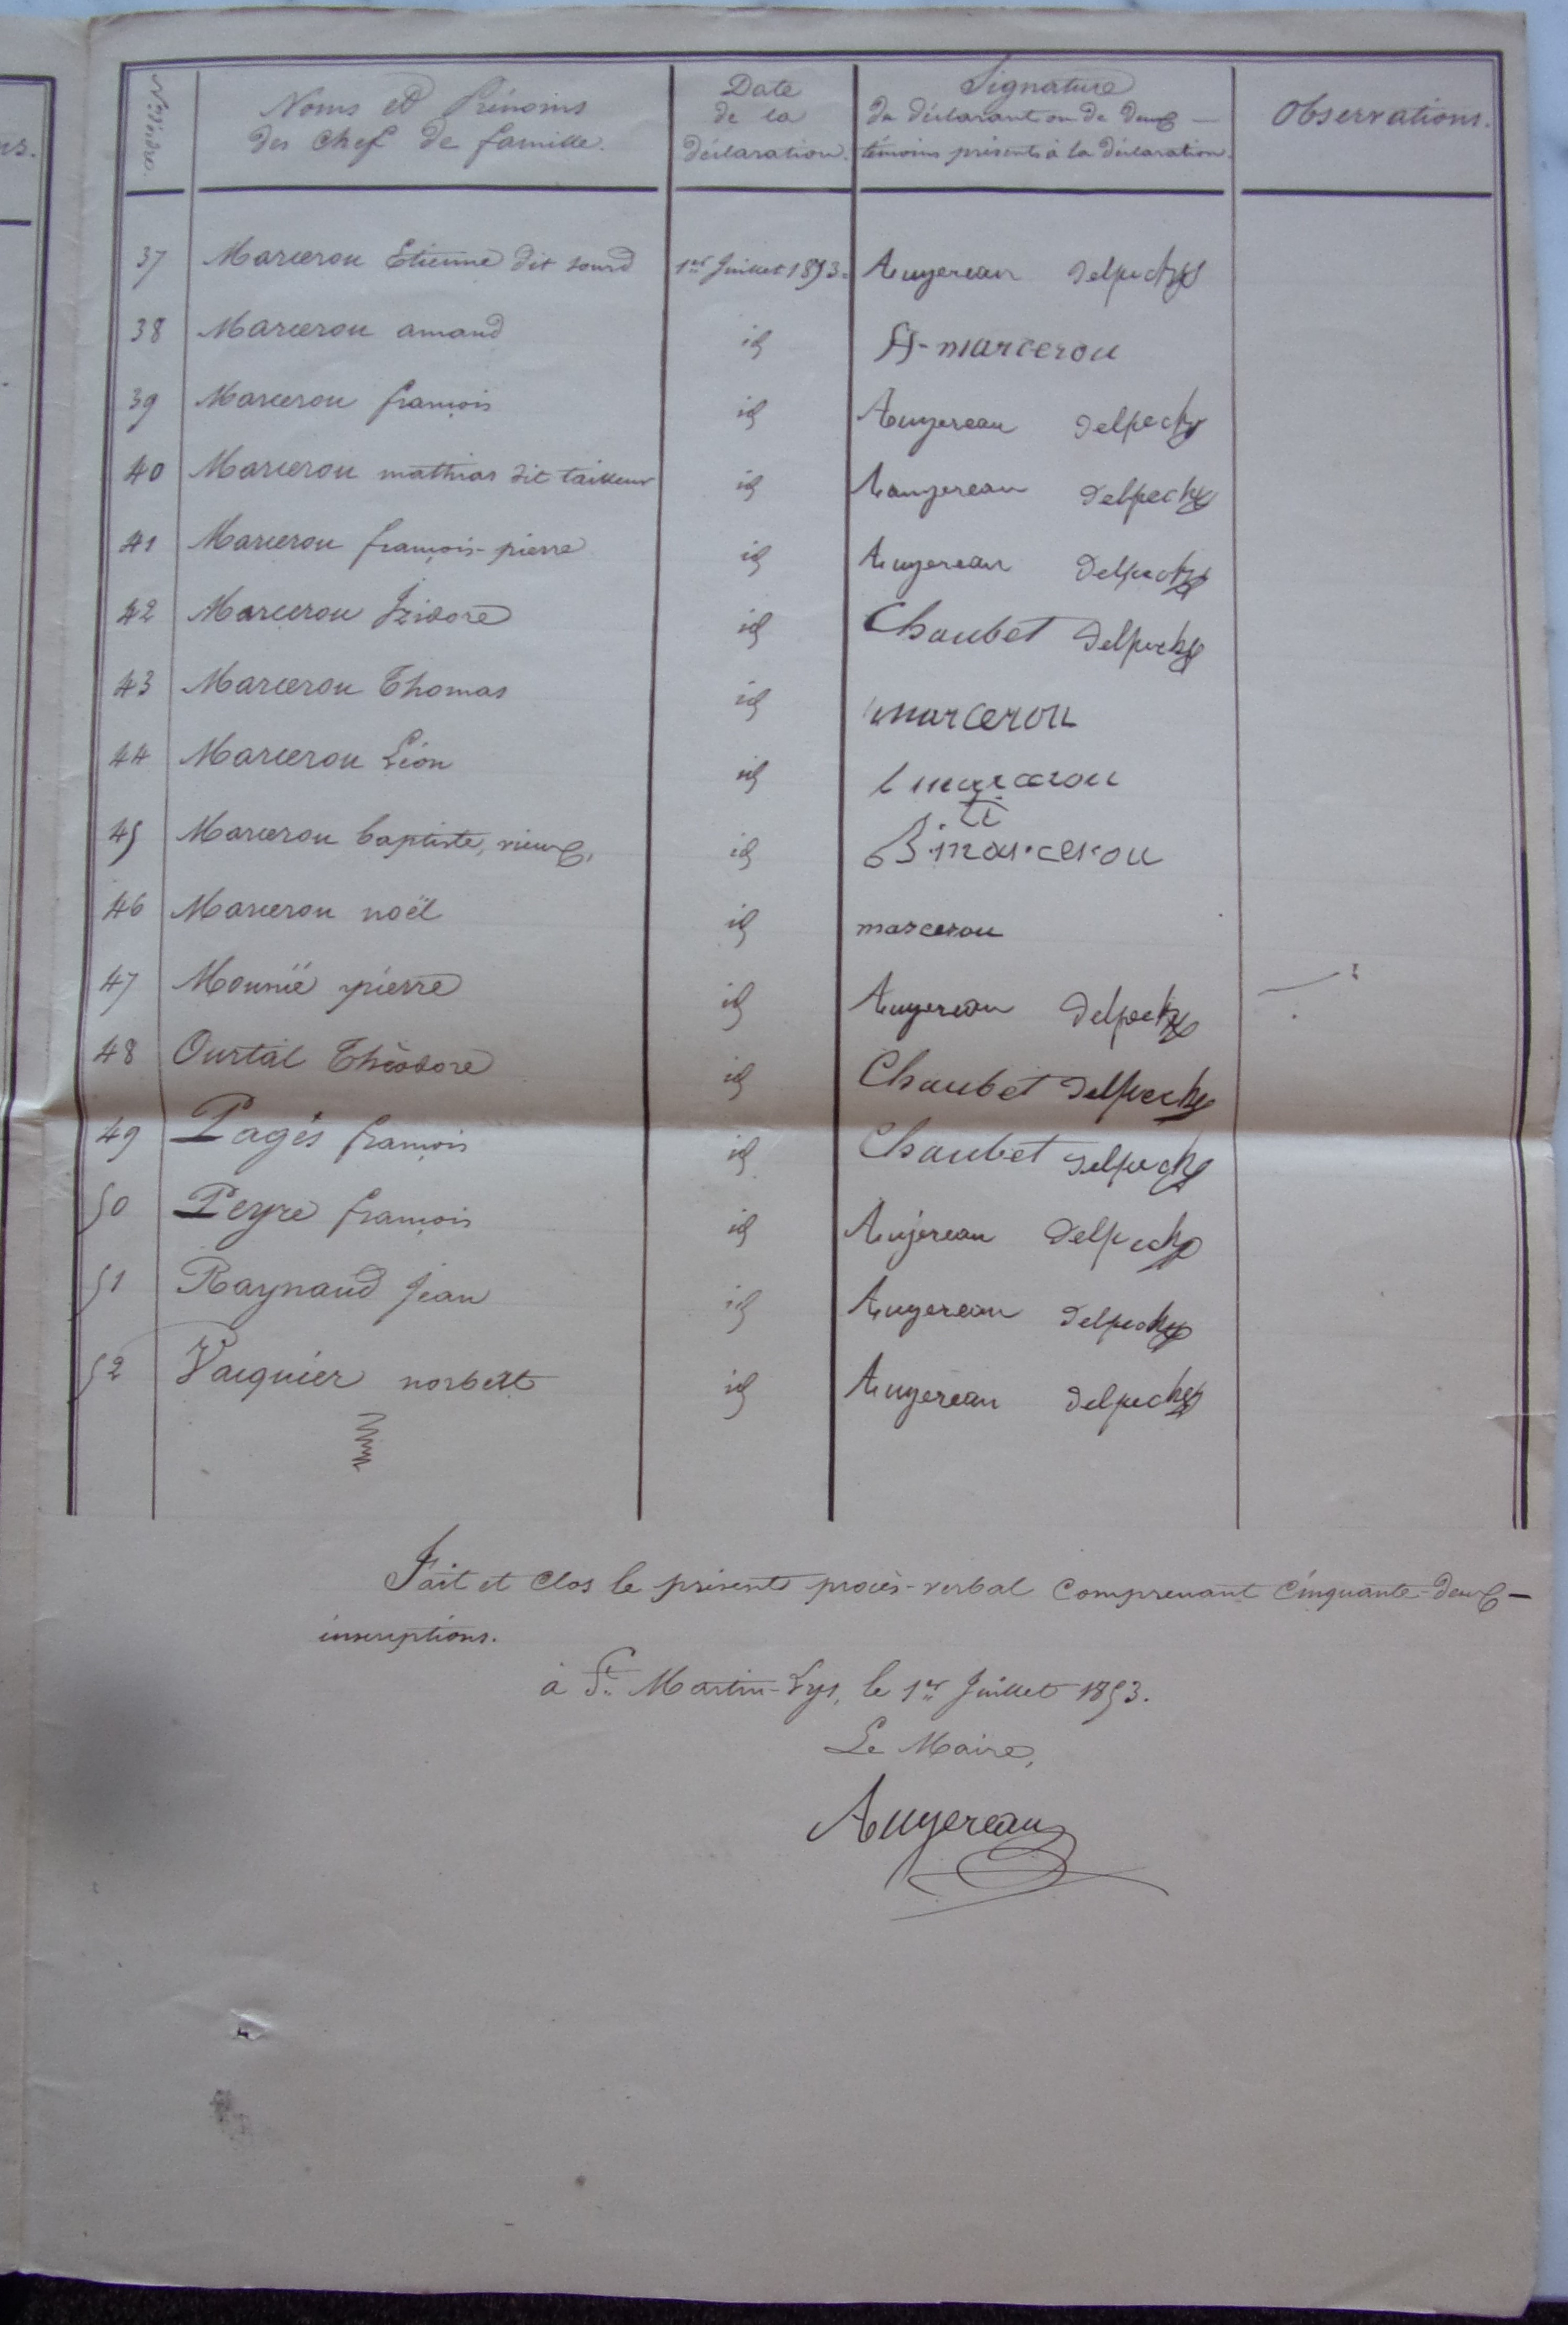 ns.
Nos d'ordre.
Noms et Prénoms
des chef de famille.
Date
de la
déclaration.
Signature
du déclarant ou de deux —
témoins présents à la déclaration.
Observations.
37 Marcerou Etienne dit sourd 1er Juillet 1853. Augereau Delpech
38 Marcerou amand id A- marcerou
39 Marcerou françois id Augereau Delpech
40 Marcerou mathias dit tailleur id Augereau Delpech
41 Marcerou françois-pierre id Augereau Delpech
42 Marcerou Izidore id Chaubet Delpech
43 Marcerou Thomas id marcerou
44 Marcerou Léon id l marcerou
45 Marcerou baptiste, vieux, id B. ti marcerou
46 Marcerou noël id marcerou
47 Mounié pierre id Augereau Delpech
48 Ourtal Théodore id Chaubet Delpech
49 Pagés françois id Chaubet Delpech
50 Peyre françois id Augereau Delpech
51 Raynaud Jean id Augereau Delpech
52 Vaquier norbert id Augereau Delpech
Fait et clos le présent procès-verbal comprenant cinquante-deux —
inscriptions.
à St. Martin-Lys, le 1er Juillet 1853.
Le Maire,
Augereau